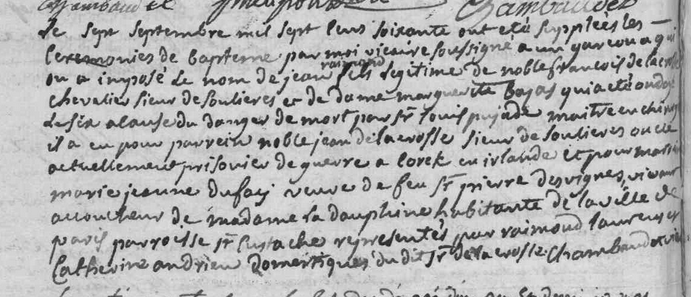 Le sept septembre mil sept cens soixante ont eté supplées les
ceremonies de bapteme par moi vicaire soussigné a un garcon a qui
on a imposé le nom de jean raimond fils legitime de noble francois de lacrosse
chevalier sieur de soulieres et de dame marguerite Bajas qui a eté ondoié
le six a cause du danger de mort par sr louis pujade maitre en chirurgie
il a eu pour parrein noble jean de lacrosse sieur de soulieres oncle
actuellement prisonier de guerre a corck en irlande et pour marraine
marie jeanne dufaij veuve de feu sr pierre desvignes, vivant
accoucheur de madame la dauphine habitante de la ville de
paris parroisse st Eustache representés par raimond et
Catherine andrieu domestiques du dit sr de lacrosse. Chambaudet